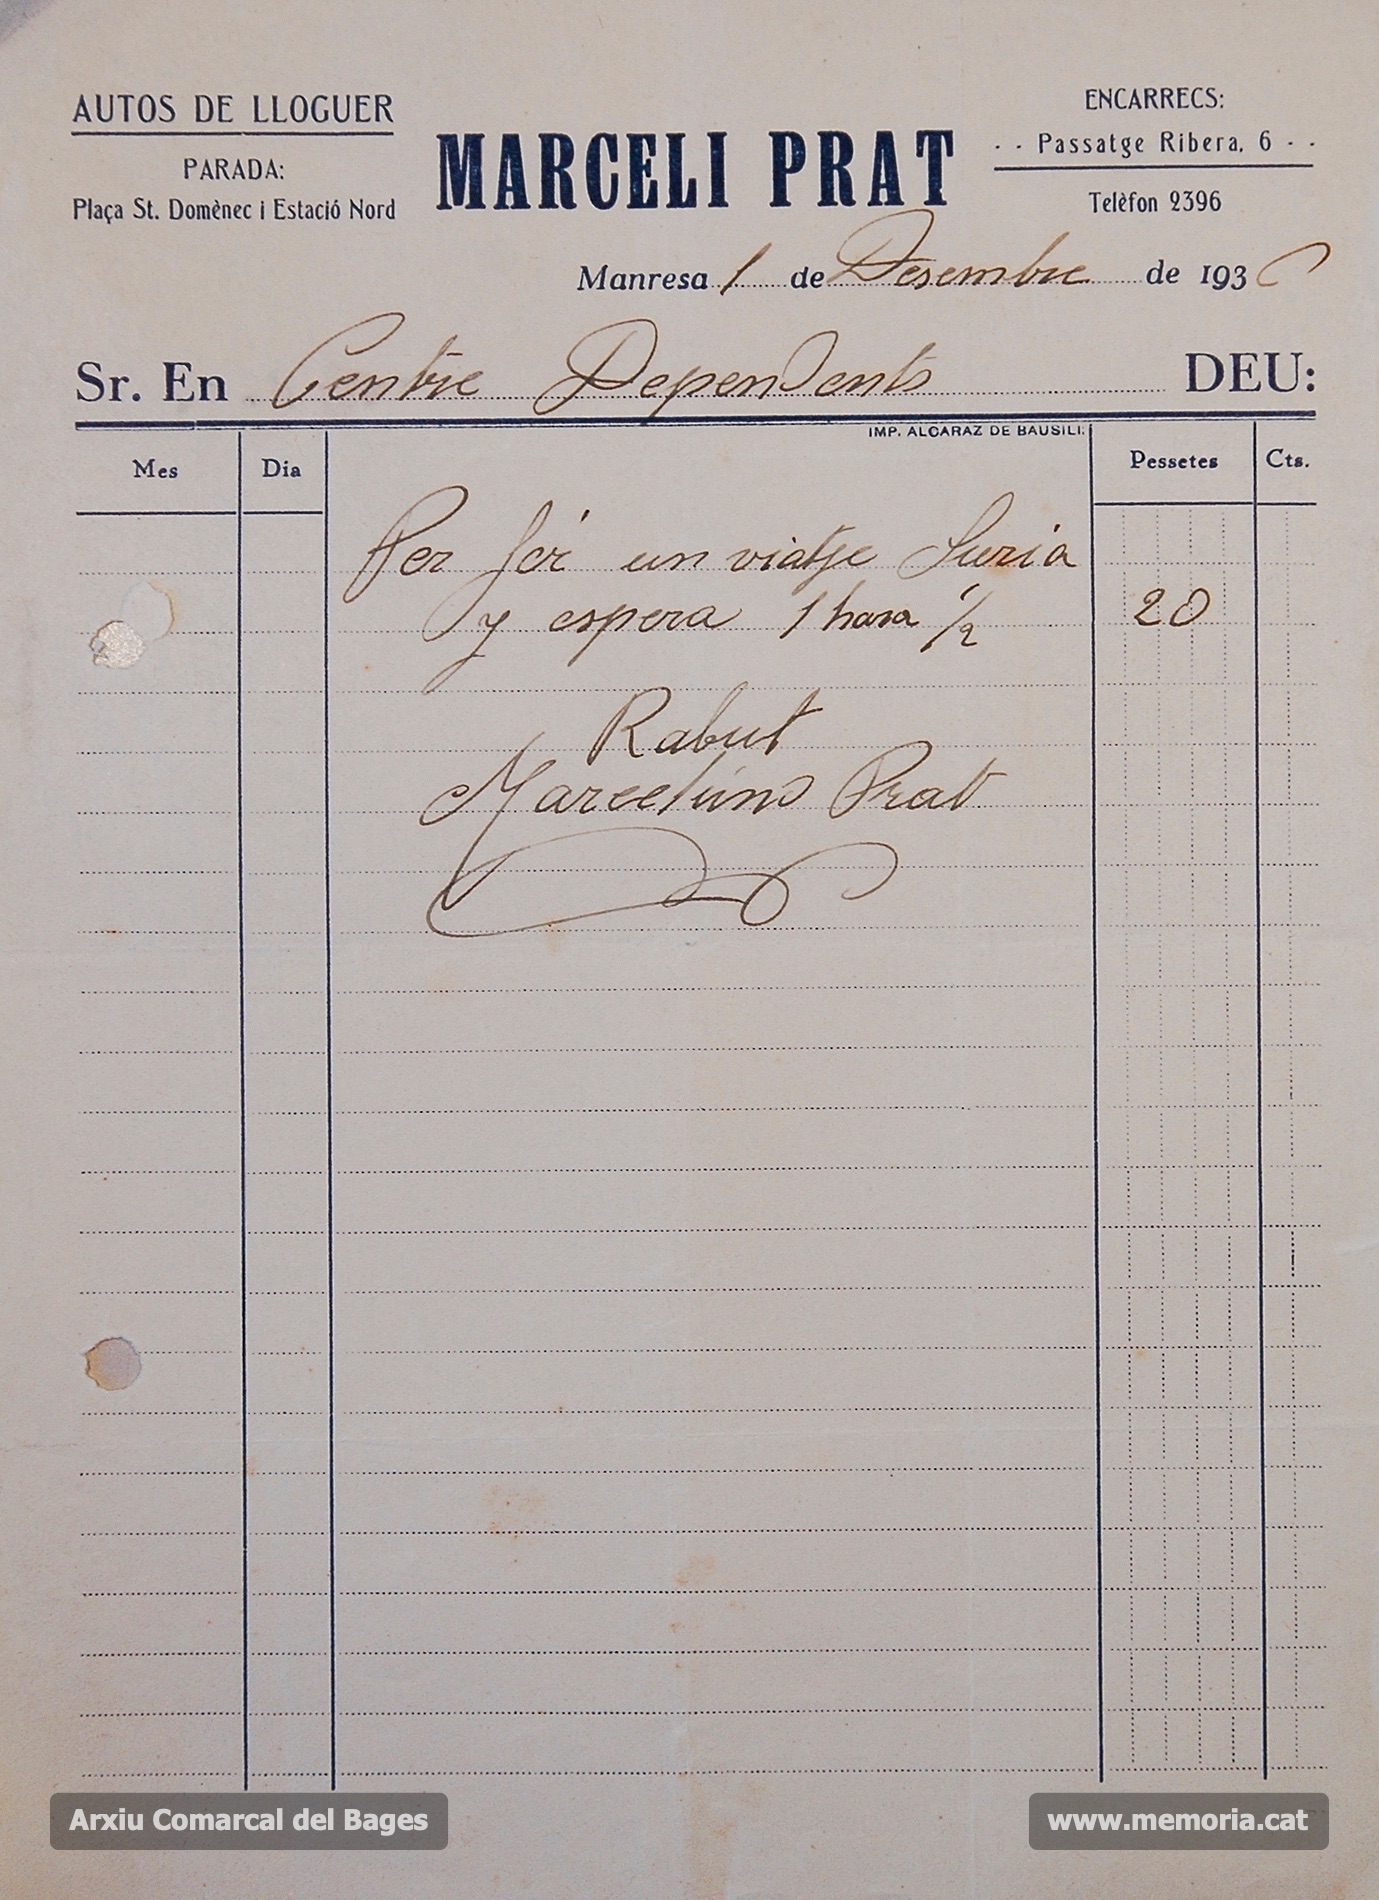 AUTOS DE LLOGUER
PARADA:
Plaça St. Domènec i Estació Nord
MARCELI PRAT
ENCARRECS:
- - Passatge Ribera, 6 - -
Telèfon 2396
Manresa 1 de Desembre de 1936
Sr. En Centre Dependents DEU:
IMP. ALCARAZ DE BAUSILI.
Mes Dia Pessetes Cts.
Per fer un viatje Suria
y espera 1 hora 1/2 20
Rabut
Marcelino Prat
Arxiu Comarcal del Bages
www.memoria.cat